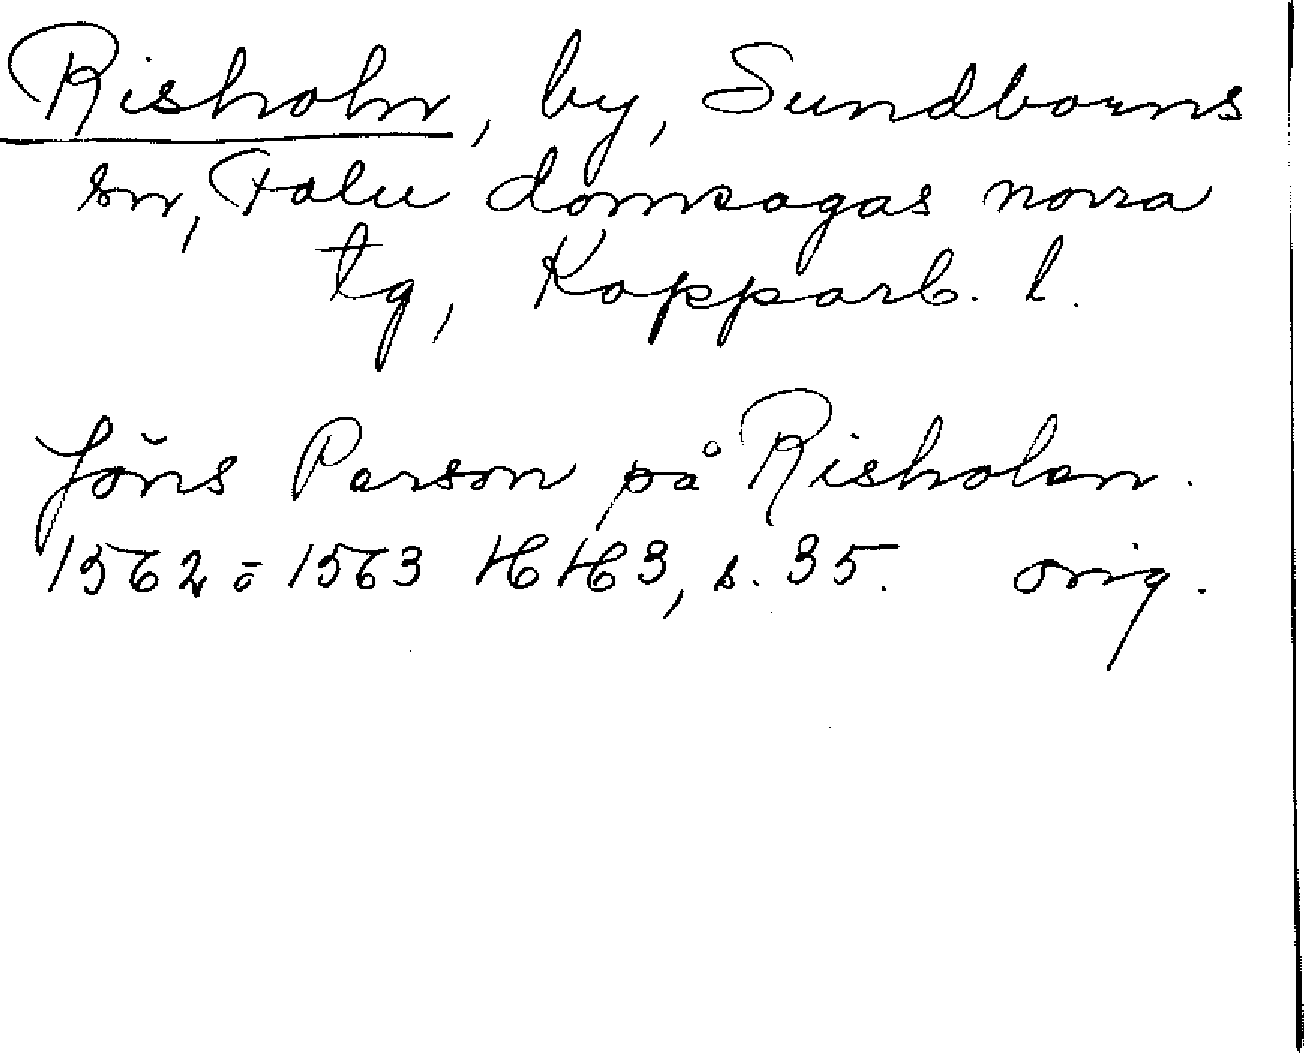 Risholn, by, Sundborns
sn, Falu domsagas norra
tg, Kopparb. l.
Jöns Person på Risholen.
1562 o 1563 HH3, s. 35. orig.